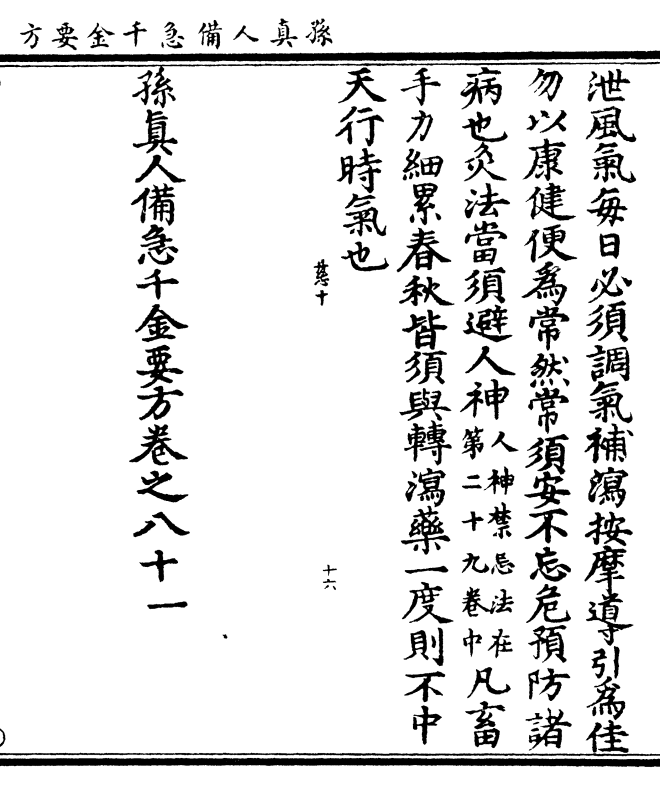 孫真人備急千金要方
泄風氣每日必須調氣補瀉按摩導引爲佳
勿以康健便爲常然常須安不忘危預防諸
病也灸法當須避人神人神禁忌法在第二十九卷中凡畜
手力細累春秋皆須與轉瀉藥一度則不中
天行時氣也
慈十
十六
孫真人備急千金要方卷之八十一